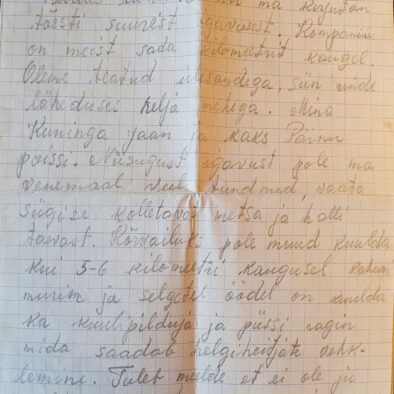 ma kirjutan
tõesti suurest igavusest. Kompanii
on meist sada kilomeetrit kaugel.
Oleme teatud ülesandega, siin rinde
läheduses nelja mehega. Mina
Kuninga Jaan ja kaks Pärnu
poissi. Niisugust igavust pole ma
venemaal veel tundnud, vaata
sügise kolletavat metsa ja halli
taevast. Kõrvailuks pole muud kuulda
kui 5-6 kilomeetri kaugusel kahuri
murin ja selgetel öödel on kuulda
ka kuulipilduja ja püssi ragin
mida saadab helgiheitjate vehk-
lemine. Tuleb meelde et ei ole ju